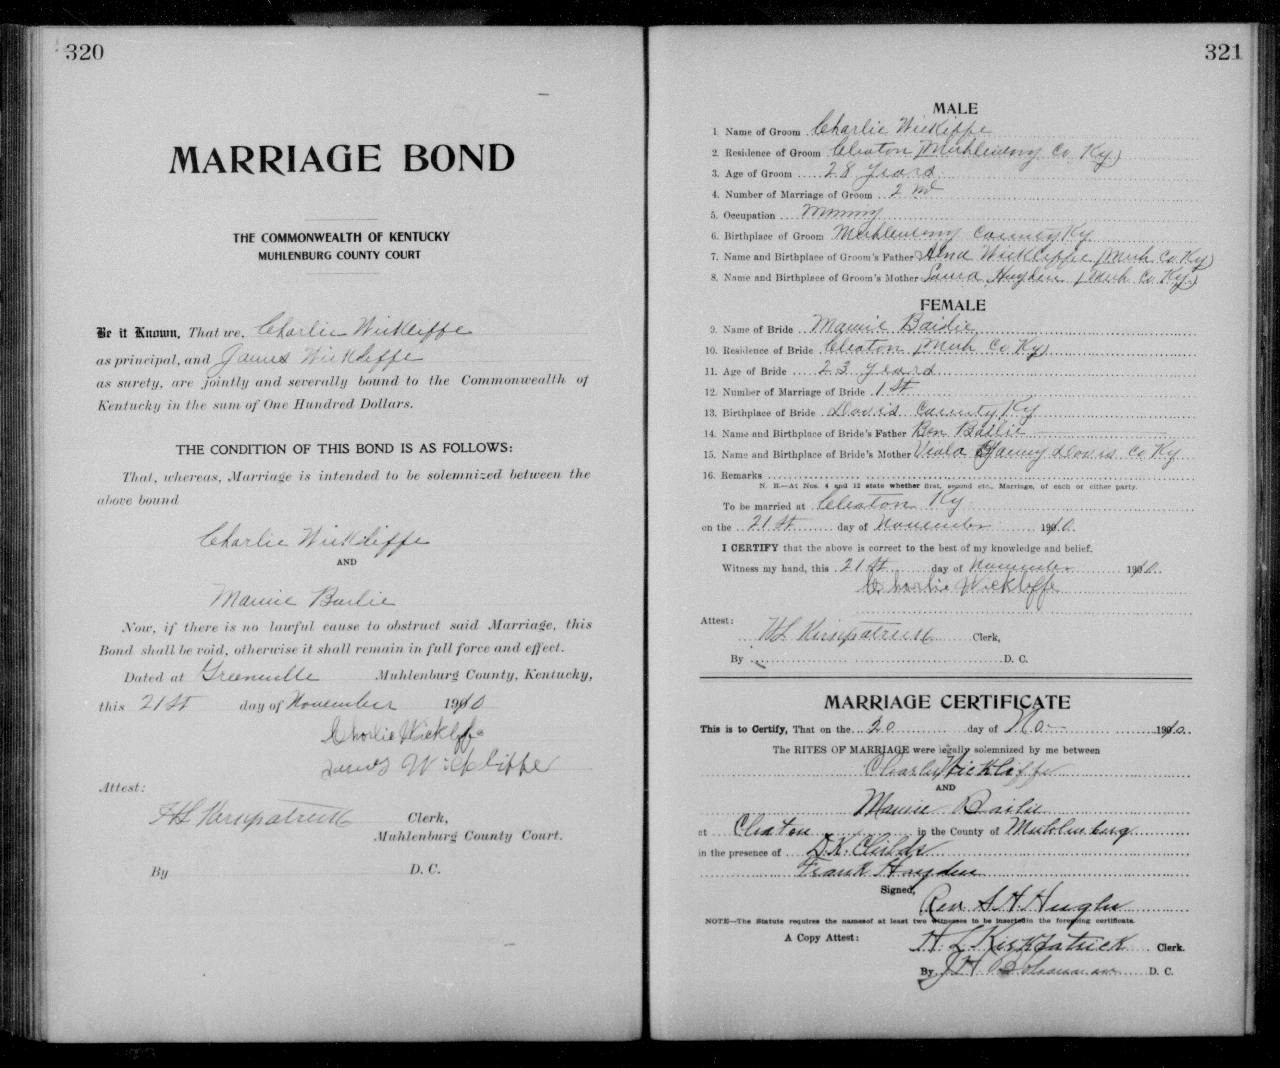 320
MARRIAGE BOND
THE COMMONWEALTH OF KENTUCKY
MUHLENBURG COUNTY COURT
Be it Known, That we, Charlie Wickliffe
as principal, and James Wickliffe
as surety, are jointly and severally bound to the Commonwealth of
Kentucky in the sum of One Hundred Dollars.
THE CONDITION OF THIS BOND IS AS FOLLOWS:
That, whereas, Marriage is intended to be solemnized between the
above bound
Charlie Wickliffe
AND
Mamie Bailie
Now, if there is no lawful cause to obstruct said Marriage, this
Bond shall be void, otherwise it shall remain in full force and effect.
Dated at Greenville Muhlenburg County, Kentucky,
this 21st day of November 1910
Charlie Wickliffe
James Wickliffe
Attest:
H L Kirkpatrick Clerk,
Muhlenburg County Court.
By D. C.
321
MALE
1. Name of Groom Charlie Wickliffe
2. Residence of Groom Cleaton (Muhlenberg Co. Ky.)
3. Age of Groom 28 years
4. Number of Marriage of Groom 2nd
5. Occupation Mining
6. Birthplace of Groom Muhlenberg County Ky
7. Name and Birthplace of Groom's Father Wickliffe (Muh Co Ky)
8. Name and Birthplace of Groom's Mother Laura Hayden (Muh Co. Ky.)
FEMALE
9. Name of Bride Mamie Bailie
10. Residence of Bride Cleaton (Muh Co Ky)
11. Age of Bride 23 years
12. Number of Marriage of Bride 1st
13. Birthplace of Bride Davis County Ky
14. Name and Birthplace of Bride's Father Ben Bailie
15. Name and Birthplace of Bride's Mother Viola Davis Co Ky
16. Remarks
N. B.—At Nos. 4 and 12 state whether first, second etc., Marriage, of each or either party.
To be married at Cleaton Ky
on the 21st day of November 1910.
I CERTIFY that the above is correct to the best of my knowledge and belief.
Witness my hand, this 21st day of November 1910.
Charlie Wickliffe
Attest:
H L Kirkpatrick Clerk,
By D. C.
MARRIAGE CERTIFICATE
This is to Certify, That on the 20 day of No- 1910.
The RITES OF MARRIAGE were legally solemnized by me between
Charley Wickliffe
AND
Mamie Bailie
at Cleaton in the County of Muhlenberg
in the presence of D.K. Childs
Frank Hayden
Signed, Rev S.H. Hughs
NOTE—The Statute requires the names of at least two witnesses to be inserted in the foregoing certificate.
A Copy Attest: H L Kirkpatrick Clerk.
By D. C.